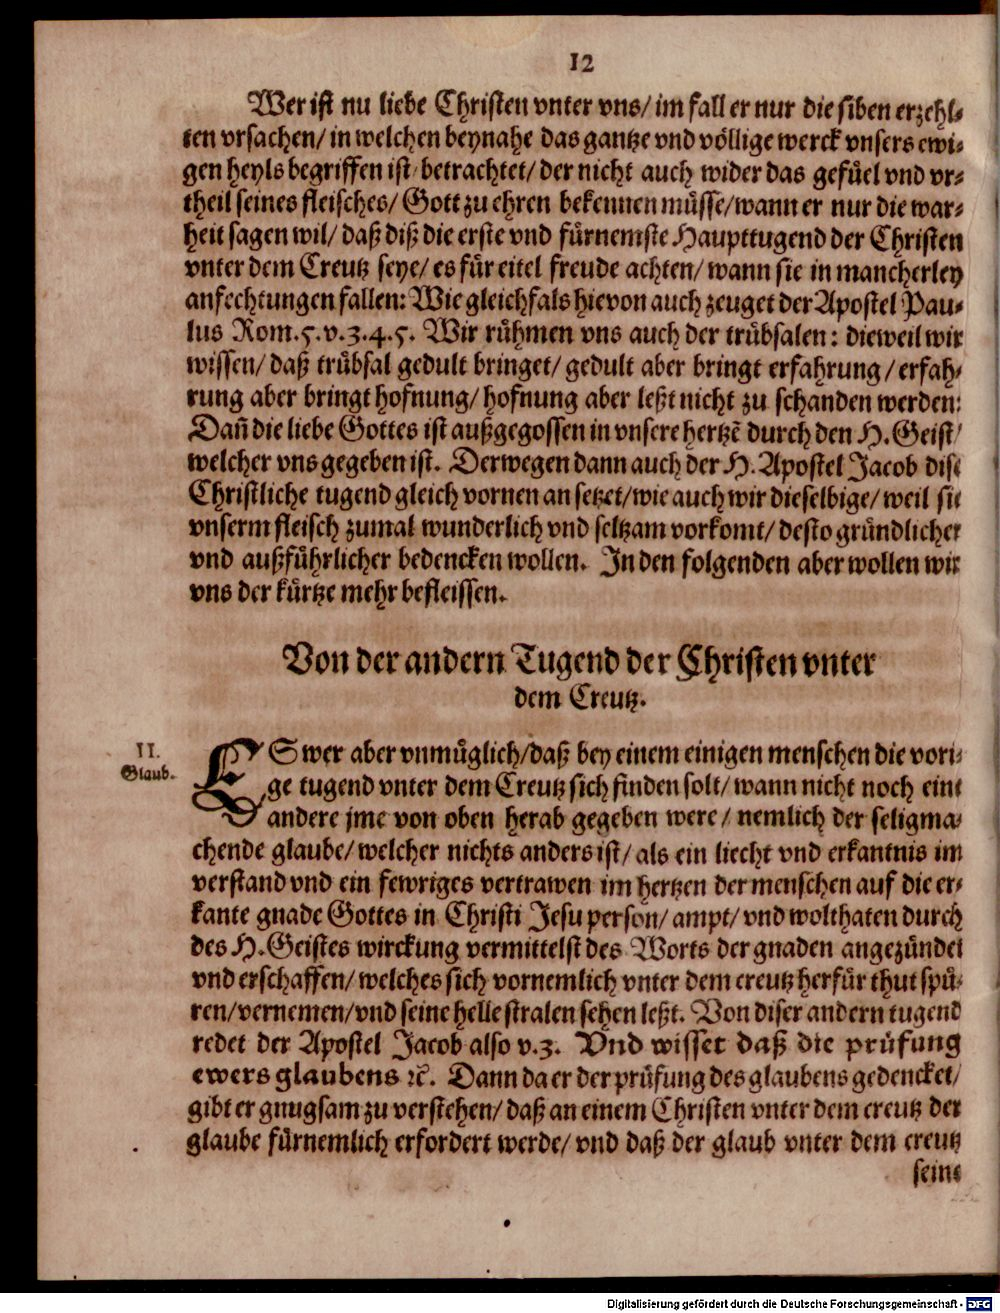 12
Wer ist nu liebe Christen vnter vns/ im fall er nur die siben erzehl-
ten vrsachen/ in welchen beynahe das gantze vnd völlige werck vnsers ewi-
gen heyls begriffen ist/ betrachtet/ der nicht auch wider das gefüel vnd vr-
theil seines fleisches/ Gott zu ehren bekennen müsse/ wann er nur die war-
heit sagen wil/ daß diß die erste vnd fürnemste Haupttugend der Christen
vnter dem Creutz seye/ es für eitel freude achten/ wann sie in mancherley
anfechtungen fallen: Wie gleichfals hievon auch zeuget der Apostel Pau-
lus Rom.5.v.3.4.5. Wir rühmen vns auch der trübsalen: dieweil wir
wissen/ daß trübsal gedult bringet/ gedult aber bringt erfahrung/ erfah-
rung aber bringt hofnung/ hofnung aber leßt nicht zu schanden werden:
Dañ die liebe Gottes ist außgegossen in vnsere hertzẽ durch den H. Geist/
welcher vns gegeben ist. Derwegen dann auch der H. Apostel Jacob dise
Christliche tugend gleich vornen an setzet/ wie auch wir dieselbige/ weil sie
vnserm fleisch zumal wunderlich vnd seltzam vorkomt/ desto gründlicher
vnd außführlicher bedencken wollen. In den folgenden aber wollen wir
vns der kürtze mehr befleissen.
Von der andern Tugend der Christen vnter
dem Creutz.
II.
Glaub.
ES wer aber vnmüglich/ daß bey einem einigen menschen die vori-
ge tugend vnter dem Creutz sich finden solt/ wann nicht noch eine
andere jme von oben herab gegeben were/ nemlich der seligma-
chende glaube/ welcher nichts anders ist/ als ein liecht vnd erkantnis im
verstand vnd ein fewriges vertrawen im hertzen der menschen auf die er-
kante gnade Gottes in Christi Jesu person/ ampt/ vnd wolthaten durch
des H. Geistes wirckung vermittelst des Worts der gnaden angezündet
vnd erschaffen/ welches sich vornemlich vnter dem creutz herfür thut spü-
ren/ vernemen/ vnd seine helle stralen sehen leßt. Von diser andern tugend
redet der Apostel Jacob also v.3. Vnd wisset daß die prüfung
ewers glaubens ꝛc. Dann da er der prüfung des glaubens gedencket/
gibt er gnugsam zu verstehen/ daß an einem Christen vnter dem creutz der
glaube fürnemlich erfordert werde/ vnd daß der glaub vnter dem creutz
seine
Digitalisierung gefördert durch die Deutsche Forschungsgemeinschaft - DFG